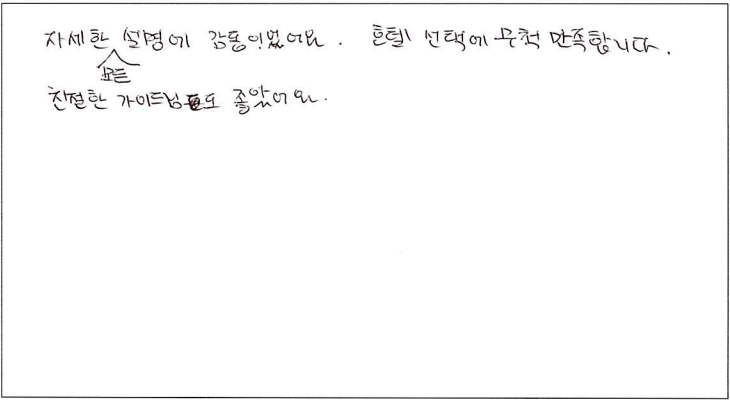 자세한 모든 설명에 감동이었어요. 호텔 선택에 무척 만족합니다.
친절한 가이드님도 좋았어요.